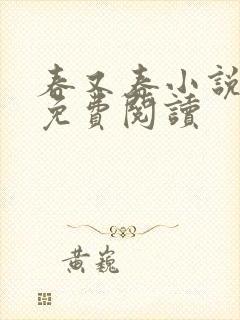 春又春小說
免費閱讀
黃巍